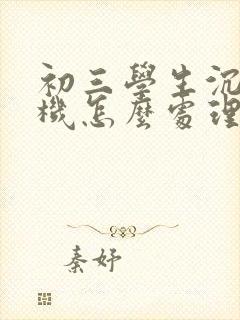 初三學生沉
機怎麼處理
秦妤